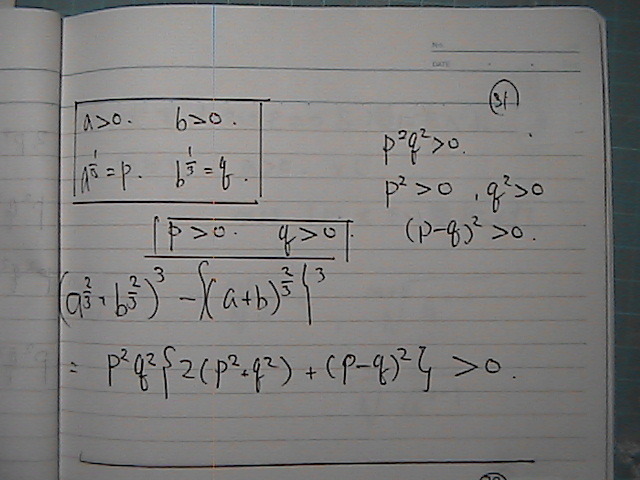 No.
DATE
(31)
a>0. b>0.
a^{1/3}=p. b^{1/3}=q.
p>0. q>0.
p²q²>0.
p²>0, q²>0
(p-q)²>0.
(a^{2/3}+b^{2/3})³-{(a+b)^{2/3}}³
= p²q²{2(p²+q²)+(p-q)²}>0.